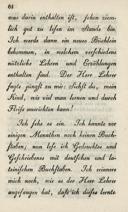 64
was darin enthalten ist, schon ziem-
lich gut zu lesen im Stande bin.
Ich werde dann ein neues Büchlein
bekommen, in welchem verschiedene
nützliche Lehren und Erzählungen
enthalten sind. Der Herr Lehrer
sagte jüngst zu mir: siehst du, mein
Kind, wie viel man lernen und durch
Fleiß ausrichten kann!
Ich sehe es ein. Ich kannte vor
einigen Monathen noch keinen Buch-
staben; nun lese ich Gedrucktes und
Geschriebenes mit deutschen und la-
teinischen Buchstaben. Ich erinnere
mich noch, wie es der Herr Lehrer
angefangen hat, daß ich dieses lernte